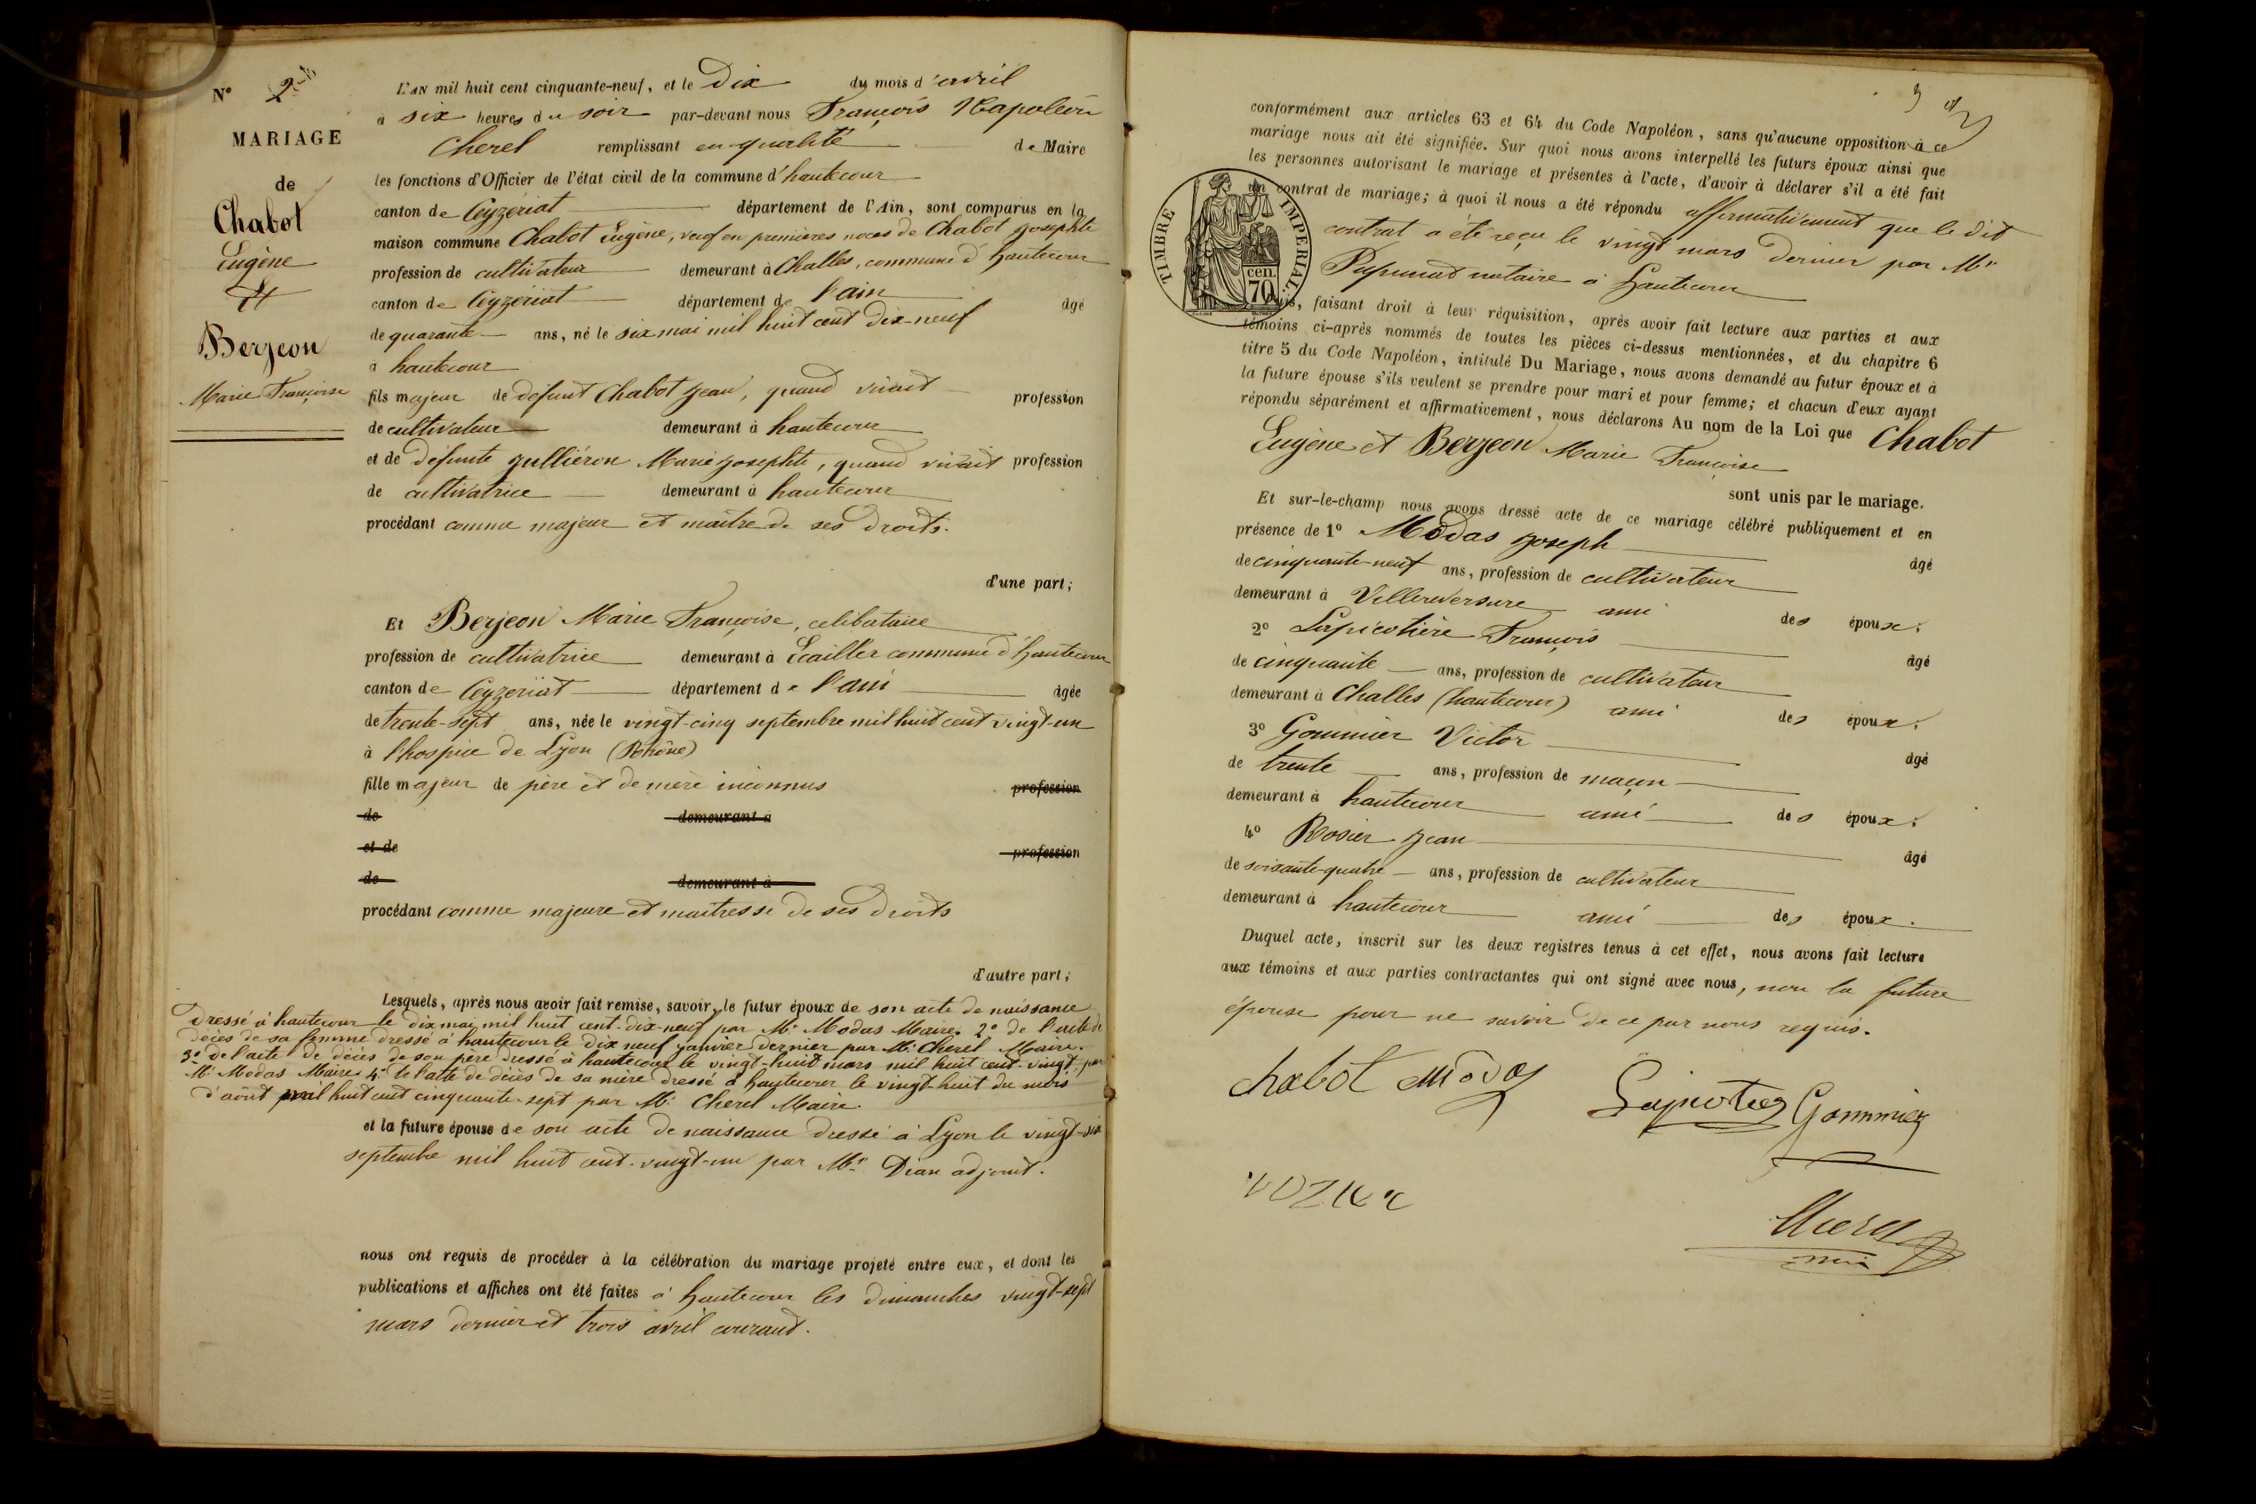 N° 2
MARIAGE
de
Chabot
Eugène
et
Berjeon
Marie Françoise
L'AN mil huit cent cinquante-neuf, et le Dix du mois d'avril
à six heures du soir par-devant nous François Napoléon
Cherel remplissant en qualité de Maire
les fonctions d'Officier de l'état civil de la commune d'hautecour
canton de Ceyzeriat département de l'Ain, sont comparus en la
maison commune Chabot Eugène, veuf en premières noces de Chabot Josephte
profession de cultivateur demeurant à Challes, commune d'hautecour
canton de Ceyzeriat département de l'ain âgé
de quarante ans, né le six mai mil huit cent dix-neuf
à hautecour
fils majeur de défunt Chabot Jean, quand vivait profession
de cultivateur demeurant à hautecour
et de défunte Julliéron Marie Josephte, quand vivait profession
de cultivatrice demeurant à hautecour
procédant comme majeur et maître de ses droits.
d'une part;
Et Berjeon Marie Françoise, célibataire
profession de cultivatrice demeurant à Ecailler commune d'hautecour
canton de Ceyzeriat département de l'ain âgée
de trente-sept ans, née le vingt-cinq septembre mil huit cent vingt-un
à l'hospice de Lyon (Rhône)
fille majeur de père et de mère inconnus profession
de demeurant à
et de profession
de demeurant à
procédant comme majeure et maîtresse de ses droits
d'autre part;
Lesquels, après nous avoir fait remise, savoir, le futur époux de son acte de naissance
dressé à hautecour le dix mai mil huit cent dix-neuf par Mr Modas Maire. 2° de l'acte de
décès de sa femme dressé à hautecour le dix neuf janvier dernier par Mr Cherel Maire.
3° de l'acte de décès de son père dressé à hautecour le vingt-huit mars mil huit cent-vingt par
Mr Modas Maire 4° de l'acte de décès de sa mère dressé à hautecour le vingt huit du mois
d'août mil huit cent cinquante-sept par Mr Cherel Maire.
et la future épouse de son acte de naissance dressé à Lyon le vingt-six
septembre mil huit cent-vingt-un par Mr Dian adjoint.
nous ont requis de procéder à la célébration du mariage projeté entre eux, et dont les
publications et affiches ont été faites à hautecour les dimanches vingt-sept
mars dernier et trois avril courant.
3
conformément aux articles 63 et 64 du Code Napoléon, sans qu'aucune opposition à ce
mariage nous ait été signifiée. Sur quoi nous avons interpellé les futurs époux ainsi que
les personnes autorisant le mariage et présentes à l'acte, d'avoir à déclarer s'il a été fait
un contrat de mariage; à quoi il nous a été répondu affirmativement que le dit
contrat a été reçu le vingt mars dernier par Mr
notaire à hautecour
TIMBRE IMPERIAL
70 cen.
, faisant droit à leur réquisition, après avoir fait lecture aux parties et aux
témoins ci-après nommés de toutes les pièces ci-dessus mentionnées, et du chapitre 6
titre 5 du Code Napoléon, intitulé Du Mariage, nous avons demandé au futur époux et à
la future épouse s'ils veulent se prendre pour mari et pour femme; et chacun d'eux ayant
répondu séparément et affirmativement, nous déclarons Au nom de la Loi que Chabot
Eugène et Berjeon Marie Françoise
sont unis par le mariage.
Et sur-le-champ nous avons dressé acte de ce mariage célébré publiquement et en
présence de 1° Modas Joseph âgé
de cinquante-neuf ans, profession de cultivateur
demeurant à Villereversure ami des époux;
2° Lapicotière François âgé
de cinquante ans, profession de cultivateur
demeurant à Challes (hautecour) ami des époux;
3° Gommier Victor âgé
de trente ans, profession de maçon
demeurant à hautecour ami des époux;
4° Rosier Jean âgé
de soixante-quatre ans, profession de cultivateur
demeurant à hautecour ami des époux.
Duquel acte, inscrit sur les deux registres tenus à cet effet, nous avons fait lecture
aux témoins et aux parties contractantes qui ont signé avec nous, non la future
épouse pour ne savoir de ce par nous requis.
chabot modas
Gommier